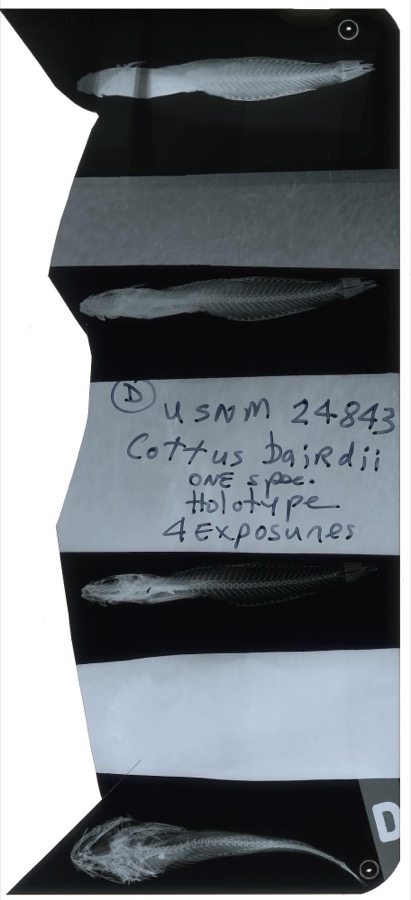 D USNM 24843
Cottus bairdii
ONE spec.
Holotype
4 Exposures
D